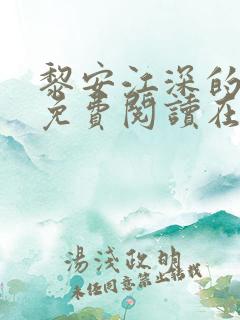 黎安江深的
免費閱讀在
湯淺政明
未經同意禁止轉載